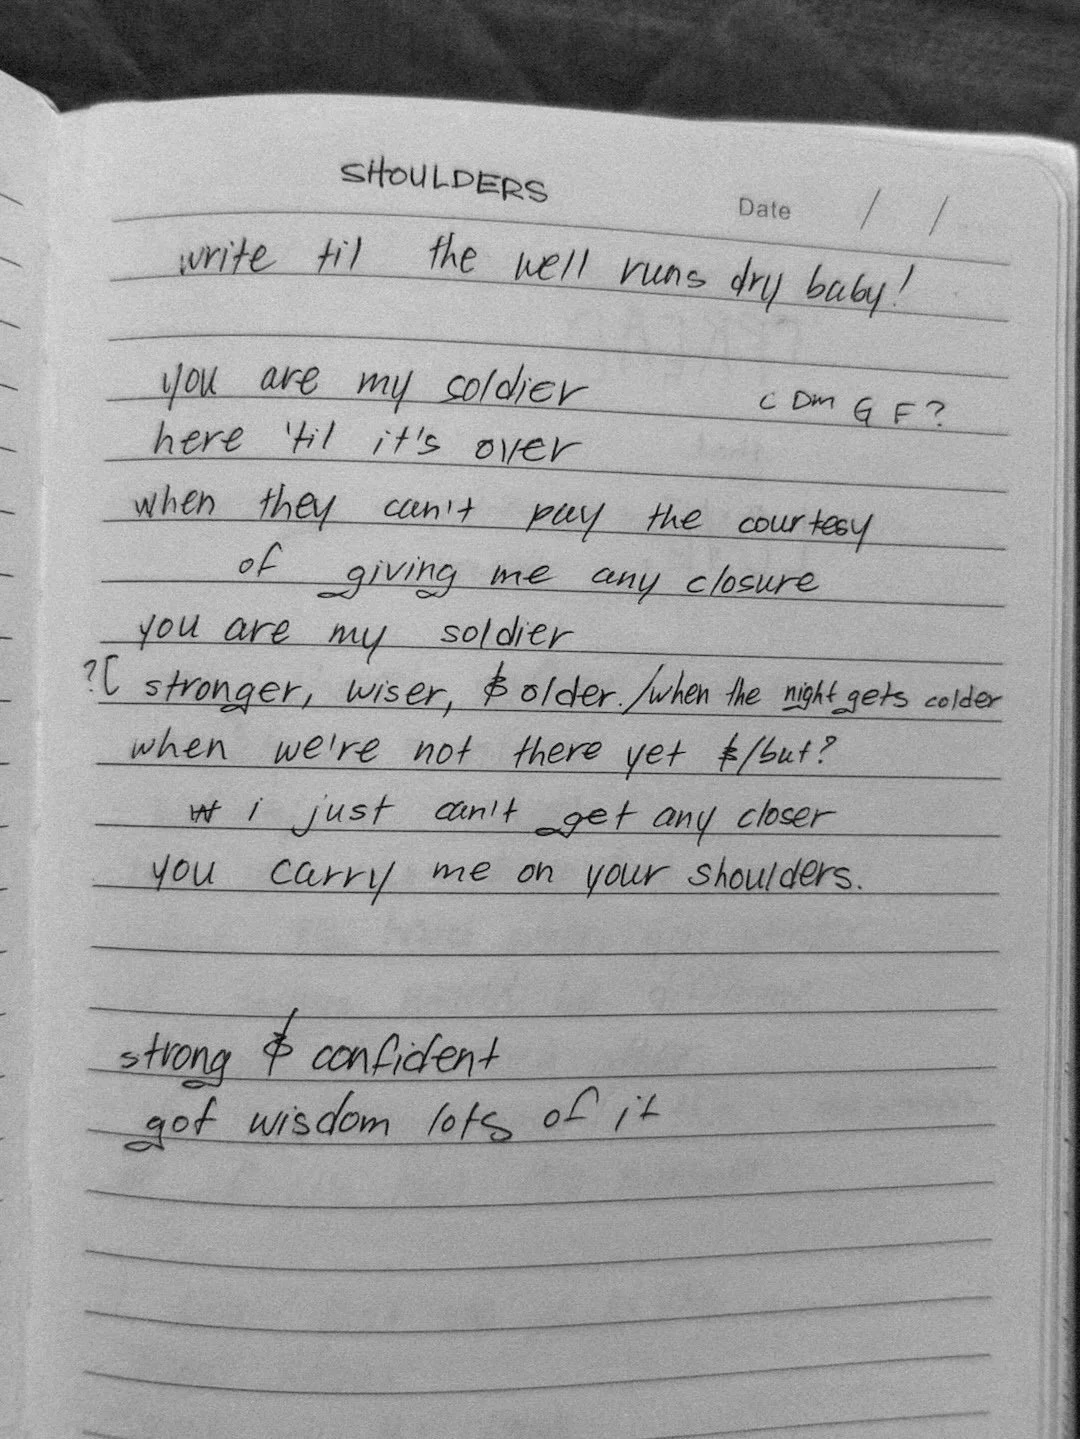 SHOULDERS
Date / /
write til the well runs dry baby!
you are my soldier
C Dm G F?
here 'til it's over
when they can't pay the courtesy
of giving me any closure
you are my soldier
?[ stronger, wiser, & older./when the night gets colder
when we're not there yet &/but?
i just can't get any closer
you carry me on your shoulders.
strong & confident
got wisdom lots of it